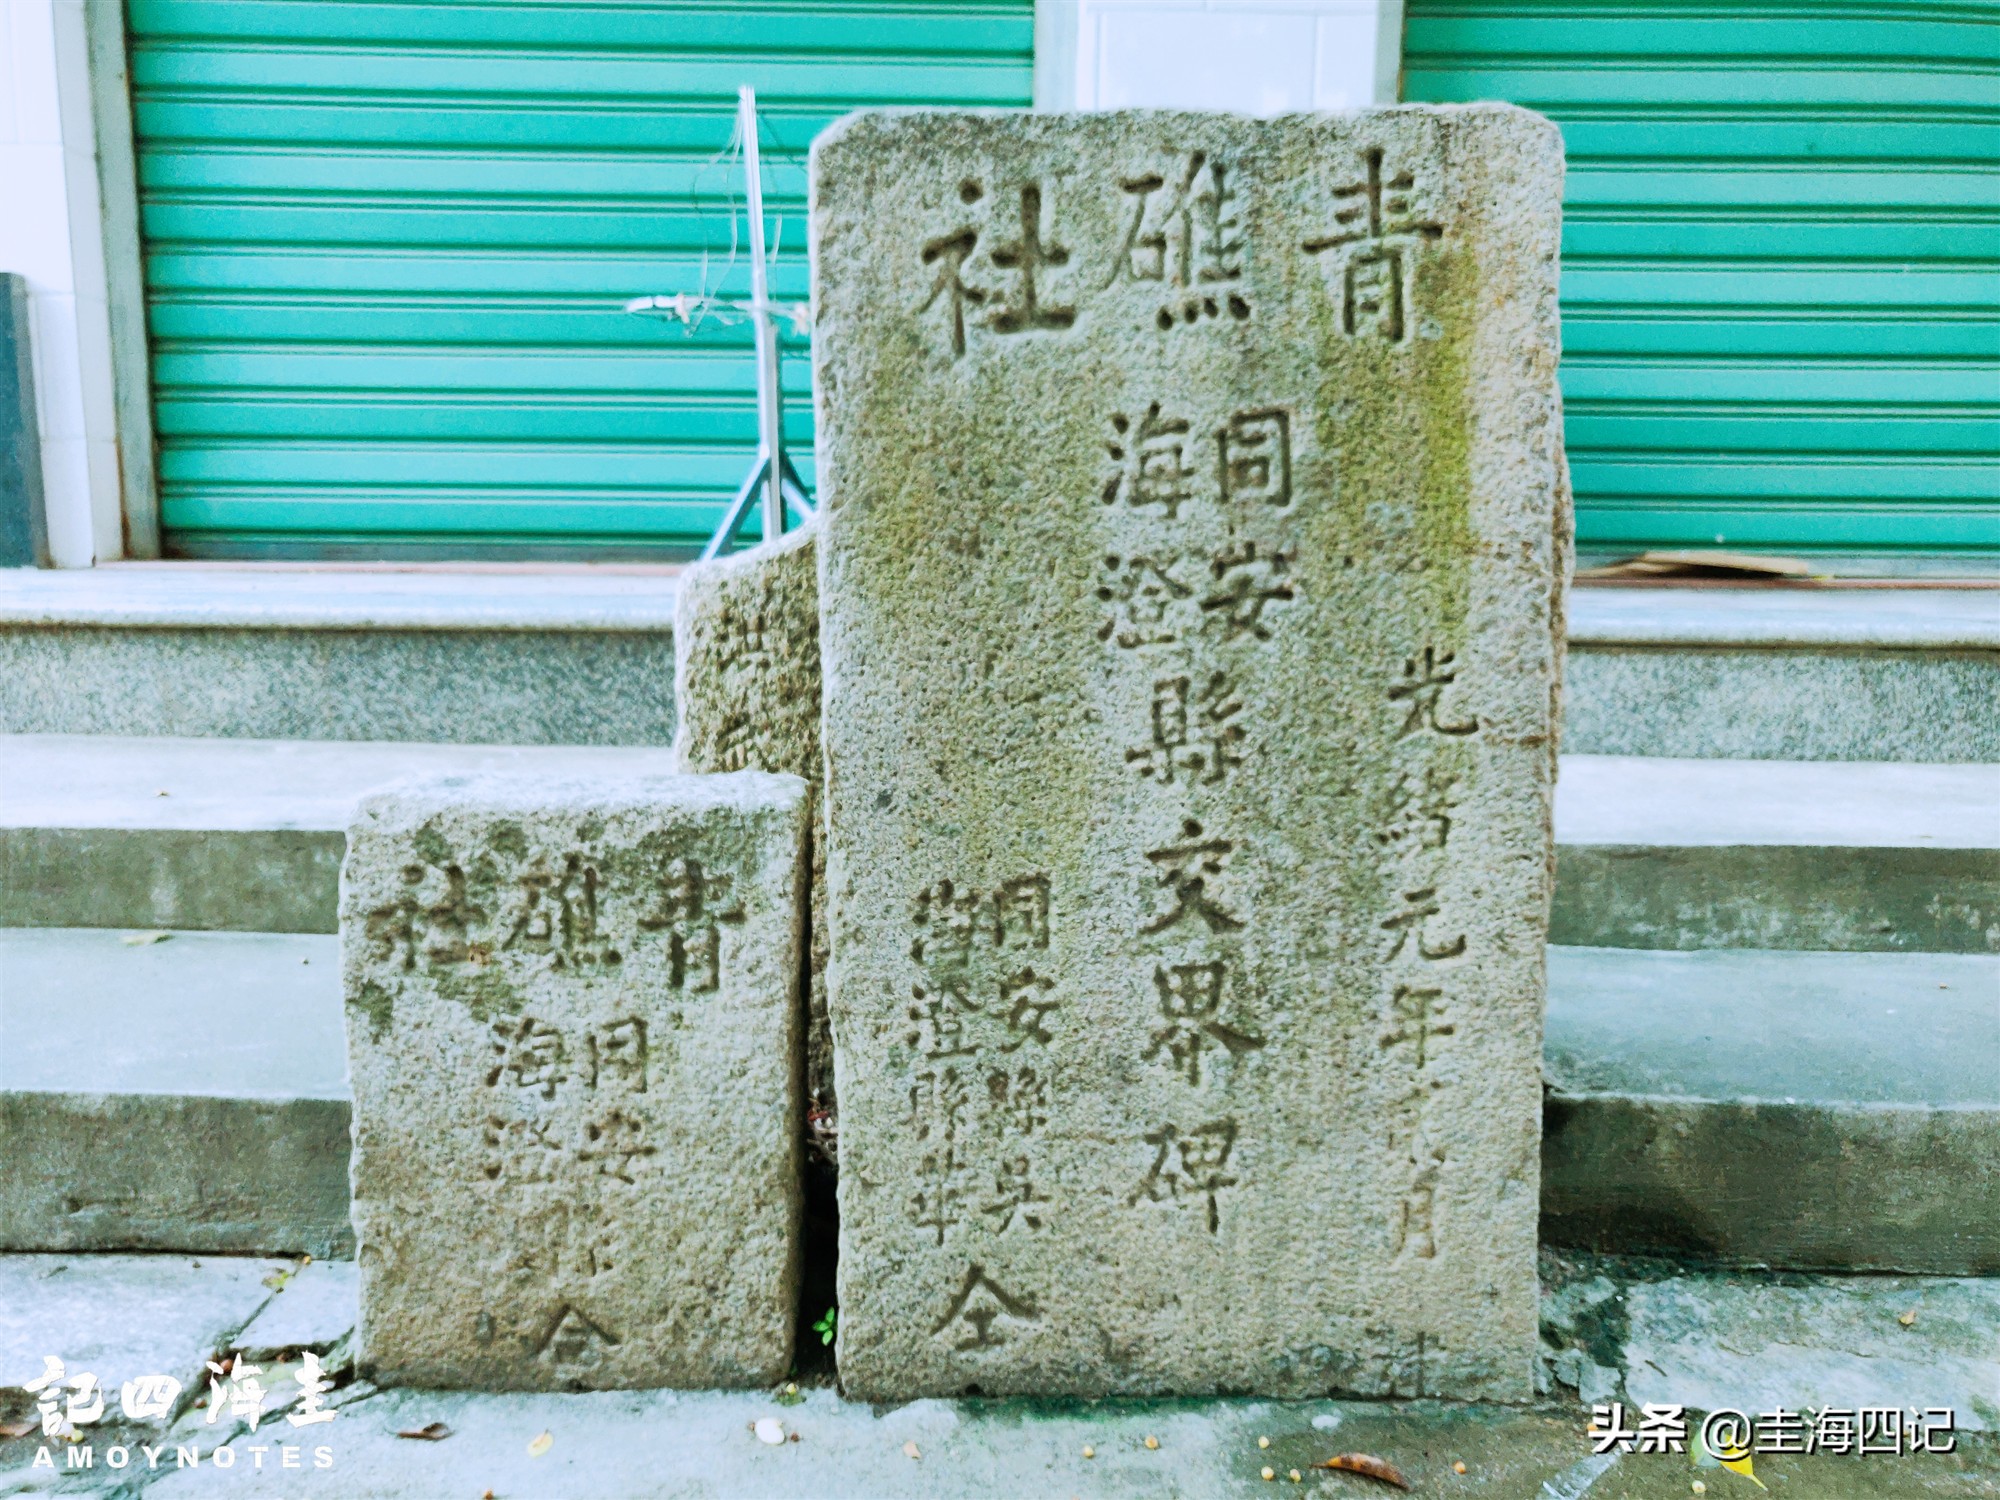 青礁社
光緒元年
同安
海澄
縣交界碑
同安縣吳
海澄縣華
仝
青礁社
同安
海澄
洪
記四海圭
AMOYNOTES
头条 @圭海四记